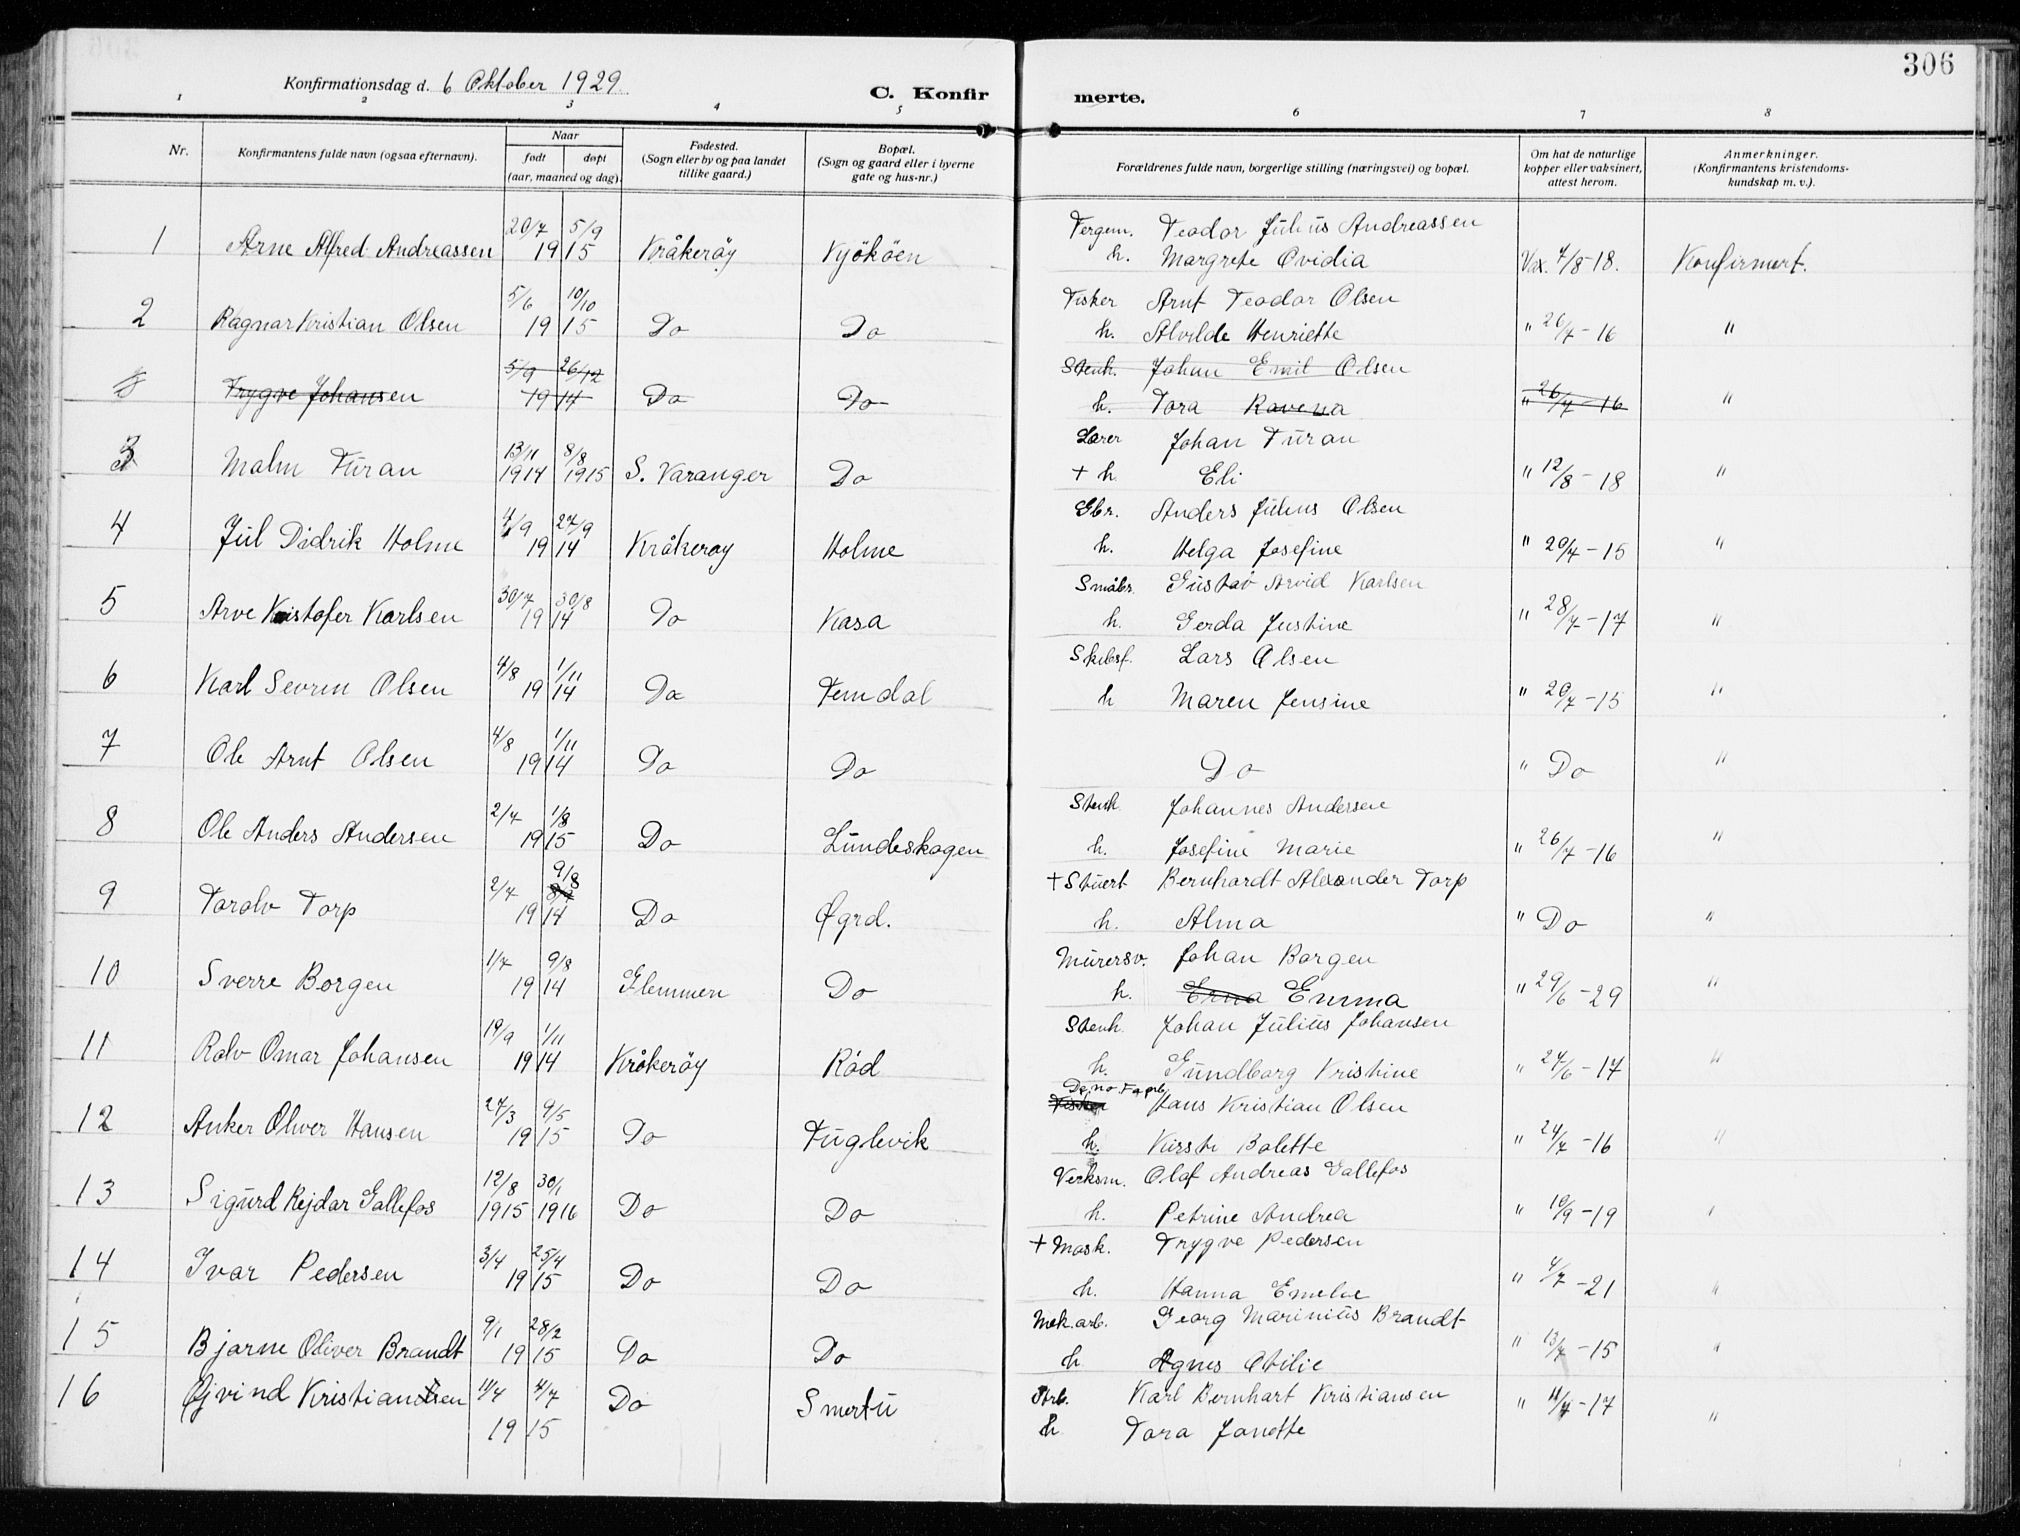 306
Konfirmationsdag d. 6 Oktober 1929.
C. Konfirmerte.
1 2 3 4 5 6 7 8
Nr. Konfirmantens fulde navn (ogsaa efternavn). Naar født døpt (aar, maaned og dag). Fødested. (Sogn eller by og paa landet tillike gaard.) Bopæl. (Sogn og gaard eller i byerne gate og hus-nr.) Forældrenes fulde navn, borgerlige stilling (næringsvei) og bopæl. Om hat de naturlige kopper eller vaksinert, attest herom. Anmerkninger. (Konfirmantens kristendomskundskap m. v.).
20/7 5/9 Fergem. Teodor Julius Andreassen
1 Arne Alfred Andreassen 19 15 Kråkerøy Kjøkøen h. Margrete Ovidia Vax. 4/8-18. Konfirmert.
5/6 10/10 Fisker Arnt Teodor Olsen
2 Ragnar Kristian Olsen 19 15 Do Do h. Alvilde Henriette " 26/7-16 "
5/9 26/12 Stenh. Johan Emil Olsen
Trygve Johansen 19 14 Do Do h. Tora Ravena " 26/7-16 "
13/11 8/8 Lærer Johan Turan
3 Malm Turan 1914 1915 S. Varanger Do + h. Eli " 12/8-18 "
4/9 27/9 Gbr. Anders Julius Olsen
4 Jul Didrik Holme 19 14 Kråkerøy Holme h. Helga Josefine " 20/7-15 "
30/7 30/8 Småbr. Gustav Arvid Karlsen
5 Arve Kristofer Karlsen 19 14 Do Kasa h. Gerda Justine " 28/7-17 "
4/8 1/11 Skibsf. Lars Olsen
6 Karl Sevrin Olsen 19 14 Do Femdal h Maren Jensine " 20/7-15 "
4/8 1/11
7 Ole Arnt Olsen 19 14 Do Do Do " Do "
2/7 1/8 Stenh. Johannes Andersen
8 Ole Anders Andersen 19 15 Do Lundeskogen h. Josefine Marie " 26/7-16 "
2/7 9/8 + Stuert Bernhardt Alexander Torp
9 Toralv Torp 19 14 Do Øgrd. h. Alma " Do "
1/7 9/8 Murersv. Johan Borgen
10 Sverre Borgen 19 14 Glemmen Do h. Erna Emma " 29/6-29 "
19/9 1/11 Stenh. Johan Julius Johansen
11 Rolv Omar Johansen 19 14 Kråkerøy Rød h. Gundborg Kristine " 27/6-17 "
27/3 9/5 Fisker Hans Kristian Olsen
12 Anker Oliver Hansen 19 15 Do Fuglevik h. Kirsti Bolette " 24/7-16 "
12/8 30/1 Verksm. Olaf Andreas Gallefos
13 Sigurd Rejdar Gallefos 1915 1916 Do Do h. Petrine Andrea " 10/9-19 "
3/4 25/4 + Mask. Trygve Pedersen
14 Ivar Pedersen 19 15 Do Do h. Hanna Emelie " 4/7-21 "
9/1 28/2 Mek.arb. Georg Marinius Brandt
15 Bjarne Oliver Brandt 19 15 Do Do h Agnes Otilie " 13/7-15 "
16 Øjvind Kristiansen 11/4 4/7 Do Smertu Arb. Karl Bernhart Kristiansen " 11/7-17 "
19 15 h Tora Janette